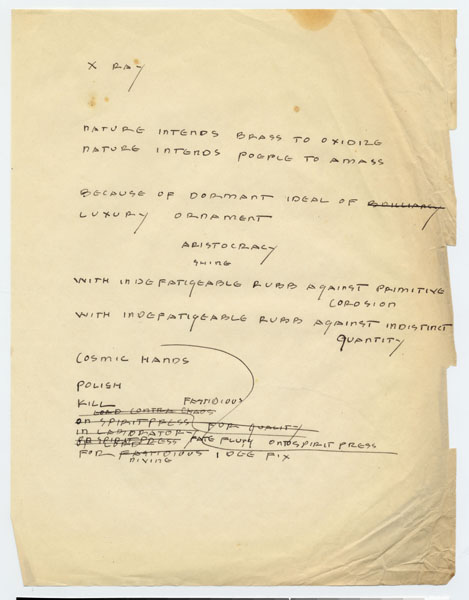 X RAY
NATURE INTENDS BRASS TO OXIDIZE
NATURE INTENDS POEPLE TO AMASS
BECAUSE OF DORMANT IDEAL OF BRILLIANCY
LUXURY ORNAMENT
ARISTOCRACY
SHINE
WITH INDEFATIGEABLE RUBB AGAINST PRIMITIVE
COROSION
WITH INDEFATIGEABLE RUBB AGAINST INDISTINCT
QUANTITY
COSMIC HANDS
POLISH
KILL FASTIDIOUS
LOAD CONTRA CHAOS
ON SPIRITPRESS FOR QUALITY
IN LABORATORY
PRESS FATE FLUFF ONTO SPIRIT PRESS
FOR FASTIDIOUS IDEE FIX
DIVING